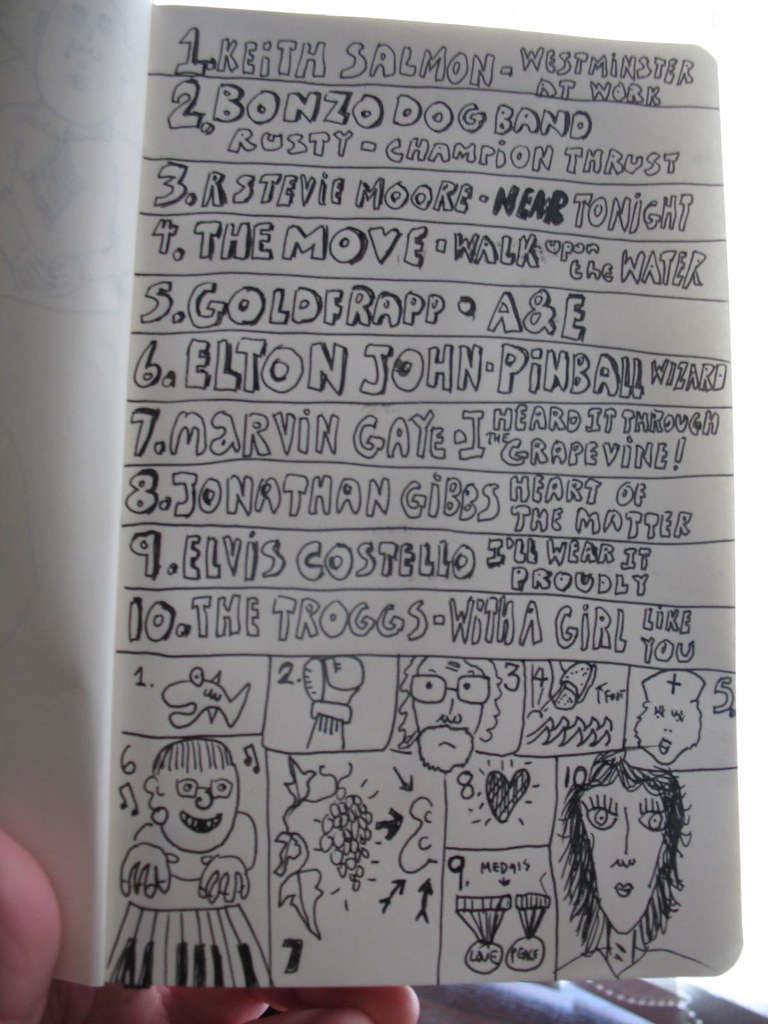 1. KEITH SALMON - WESTMINSTER
AT WORK
2. BONZO DOG BAND
RUSTY - CHAMPION THRUST
3. R STEVIE MOORE - NEAR TONIGHT
4. THE MOVE - WALK upon
the WATER
5. GOLDFRAPP - A&E
6. ELTON JOHN - PINBALL WIZARD
7. MARVIN GAYE - I HEARD IT THROUGH
THE GRAPEVINE!
8. JONATHAN GIBBS HEART OF
THE MATTER
9. ELVIS COSTELLO I'LL WEAR IT
PROUDLY
10. THE TROGGS - WITH A GIRL LIKE
YOU
1.
2.
3
4
FOOT
5.
6
7
8.
9.
MEDALS
LOVE
PEACE
10